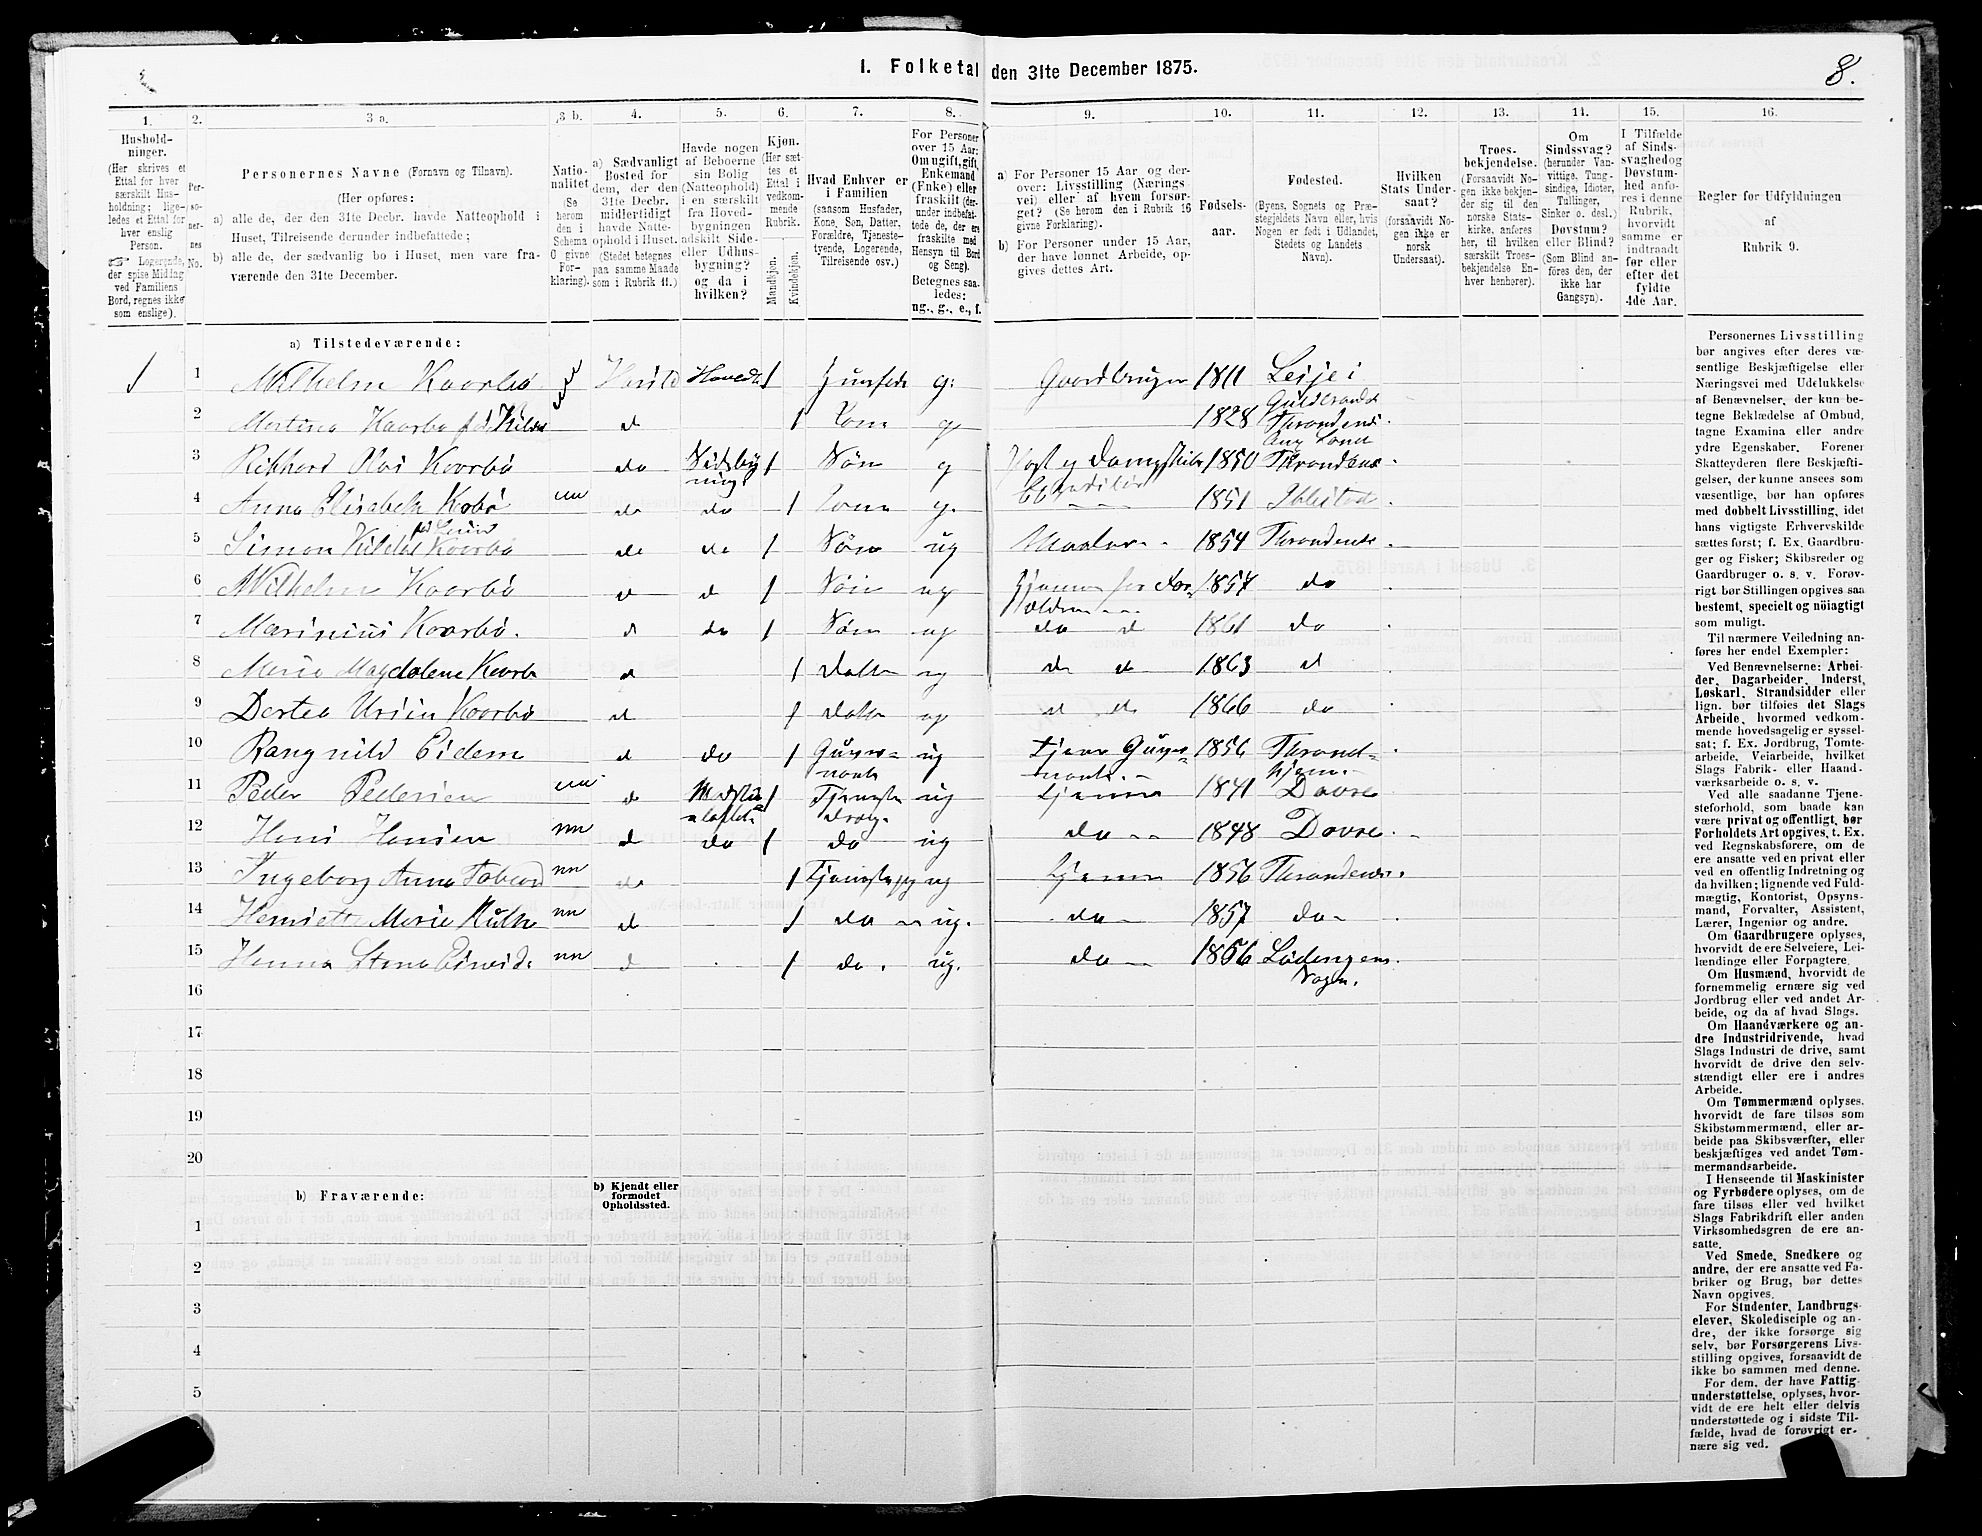 I. Folketal den 31te December 1875.
8.
1.
2.
3 a.
3 b.
4.
5.
6.
7.
8.
9.
10.
11.
12.
13.
14.
15.
16.
Hushold-
ninger.
(Her skrives et
Ettal for hver
særskilt Hus-
holdning; lige-
ledes et Ettal for
hver enslig
Person.
☞ Logerende,
der spise Middag
ved Familiens
Bord, regnes ikke
som enslige).
Per-
so-
ner-
nes
No.
Personernes Navne (Fornavn og Tilnavn).
(Her opføres:
a) alle de, der den 31te Decbr. havde Natteophold i
Huset, Tilreisende derunder indbefattede;
b) alle de, der sædvanlig bo i Huset, men vare fra-
værende den 31te December.
Natio-
nalitet
(Se
herom
den i
Schema
O givne
For-
klaring).
a) Sædvanligt
Bosted for
dem, der den
31te Decbr.
midlertidigt
havde Natte-
ophold i Huset.
(Stedet betegnes
paa samme Maade
som i Rubrik 11.)
Havde nogen
af Beboerne
sin Bolig
(Natteophold)
i en særskilt
fra Hoved-
bygningen
adskilt Side-
eller Udhus-
bygning?
og da i
hvilken?
Kjøn.
(Her sæt-
tes et
Ettal i
vedkom-
mende
Rubrik.
Mandkjøn.
Kvindekjøn.
Hvad Enhver er
i Familien
(saasom Husfader,
Kone, Søn, Datter,
Forældre, Tjeneste-
tyende, Logerende,
Tilreisende osv.)
For Personer
over 15 Aar:
Om ugift, gift,
Enkemand
(Enke) eller
fraskilt (der-
under indbefat-
tede de, der ere
fraskilte med
Hensyn til Bord
og Seng).
Betegnes saa-
ledes:
ug., g., e., f.
a) For Personer 15 Aar og der-
over: Livsstilling (Nærings-
vei) eller af hvem forsør-
get? (Se herom den i Rubrik 16
givne Forklaring).
b) For Personer under 15 Aar,
der have lønnet Arbeide, op-
gives dettes Art.
Fødsels-
aar.
Fødested.
(Byens, Sognets og Præ-
stegjeldets Navn eller, hvis
Nogen er født i Udlandet,
Stedets og Landets
Navn).
Hvilken
Stats Under-
saat?
(forsaavidt No-
gen ikke er
norsk
Undersaat).
Troes-
bekjendelse.
(Forsaavidt No-
gen ikke bekjen-
der sig til den
norske Stats-
kirke, anføres
her, til hvilken
særskilt Troes-
bekjendelse En-
hver henhører).
Om
Sindssvag?
(herunder Van-
vittige, Tung-
sindige, Idioter,
Tullinger,
Sinker o. desl.)
Døvstum?
eller Blind?
(Som Blind an-
føres den, der
ikke har
Gangsyn).
I Tilfælde
af Sinds-
svaghed og
Døvstum-
hed anfø-
res i denne
Rubrik,
hvorvidt
samme er
indtraadt
før eller
efter det
fyldte
4de Aar.
Regler for Udfyldningen
af
Rubrik 9.
a) Tilstedeværende:
1 1 Wilhelm Kaarbø g: Gaardbruger 1811 Lesje i
Guldbrands
2 Martina Kaarbø d 1 Kone g 1828 Throndenæs
3 Rikhard Kaarbø do Sidebyg 1 Søn g 1850 Throndenæs
ning
4 Anna Elisabeth Kaarbø d do 1 Kone g. 1851 Ibbestad
5 Simon Kaarbø do do 1 Søn ug 1854 Throndenæs
6 Wilhelm Kaarbø d d 1 Søn ug 1857 do
7 Marinius Kaarbø. d do 1 Søn ug do d 1861 do
8 Maria Magdalene Kaarbø d 1 Datter ug d d 1863 d
9 Dortea Kaarbø d 1 Datter ug d d 1866 do
10 Rangnild Eidem d do 1 Guver- ug Guver- 1856 Thrond-
nante nante.- hjem.-
11 Peder Pedersen d 1 Tjeneste ug tjener 1841 Dovre
dreng.
12 Hans Hansen nn d do 1 do ug do 1848 Dovre.
13 Ingeborg Anna nn do 1 ug tjener 1856 Throndenæs.
14 Henriette Marie nn d 1 do ug. do 1857 do
15 Hanna nn d 1 do. ug. do 1856 Lødingens
Sogn.
16
17
18
19
20
b) Fraværende:
b) Kjendt eller
formodet
Opholdssted.
1
2
3
4
5
Personernes Livsstilling
bør angives efter deres væ-
sentlige Beskjæftigelse eller
Næringsvei med Udelukkelse
af Benævnelser, der kun be-
tegne Beklædelse af Ombud,
tagne Examina eller andre
ydre Egenskaber. Forener
Skatteyderen flere Beskjæfti-
gelser, der kunne ansees som
væsentlige, bør han opføres
med dobbelt Livsstilling, idet
hans vigtigste Erhvervskilde
sættes først; f. Ex. Gaardbru-
ger og Fisker; Skibsreder og
Gaardbruger o. s. v. Forøv-
rigt bør Stillingen opgives saa
bestemt, specielt og nöiagtigt
som muligt.
Til nærmere Veiledning an-
føres her endel Exempler:
Ved Benævnelserne: Arbei-
der, Dagarbeider, Inderst,
Løskarl, Strandsidder eller
lign. bør tilføies det Slags
Arbeide, hvormed vedkom-
mende hovedsagelig er syssel-
sat; f. Ex. Jordbrug, Tomte-
arbeide, Veiarbeide, hvilket
Slags Fabrik- eller Haand-
værksarbeide o. s. v.
Ved alle saadanne Tjene-
steforhold, som baade kan
være privat og offentligt, bør
Forholdets Art opgives, f. Ex.
ved Regnskabsførere, om de
ere ansatte ved en privat eller
ved en offentlig Indretning og
da hvilken; lignende ved Fuld-
mægtig, Kontorist, Opsyns-
mand, Forvalter, Assistent,
Lærer, Ingeniør og andre.
Om Gaardbrugere oplyses,
hvorvidt de ere Selveiere, Lei-
lændinge eller Forpagtere.
Om Husmænd, hvorvidt de
fornemmelig ernære sig ved
Jordbrug eller ved andet Ar-
beide, og da af hvad Slags.
Om Haandværkere og an-
dre Industridrivende, hvad
Slags Industri de drive, samt
hvorvidt de drive den selv-
stændigt eller ere i andres
Arbeide.
Om Tømmermænd oplyses,
hvorvidt de fare tilsøs som
Skibstømmermænd, eller ar-
beide paa Skibsværfter, eller
beskjæftiges ved andet Tøm-
mermandsarbeide.
I Henseende til Maskinister
og Fyrbødere oplyses, om de
fare tilsøs eller ved hvilket
Slags Fabrikdrift eller anden
Virksomhedsgren de ere an-
satte.
Ved Smede, Snedkere og
andre, der ere ansatte ved Fa-
briker og Brug, bør dettes
Navn opgives.
For Studenter, Landbrugs-
elever, Skoledisciple og an-
dre, der ikke forsørge sig
selv, bør Forsørgerens Livs-
stilling opgives, forsaavidt de
ikke bo sammen med denne.
For dem, der have Fattig-
understøttelse, oplyses, hvor-
vidt de ere helt eller delvis
understøttede og i sidste Til-
fælde, hvad de forøvrigt er-
nære sig ved.